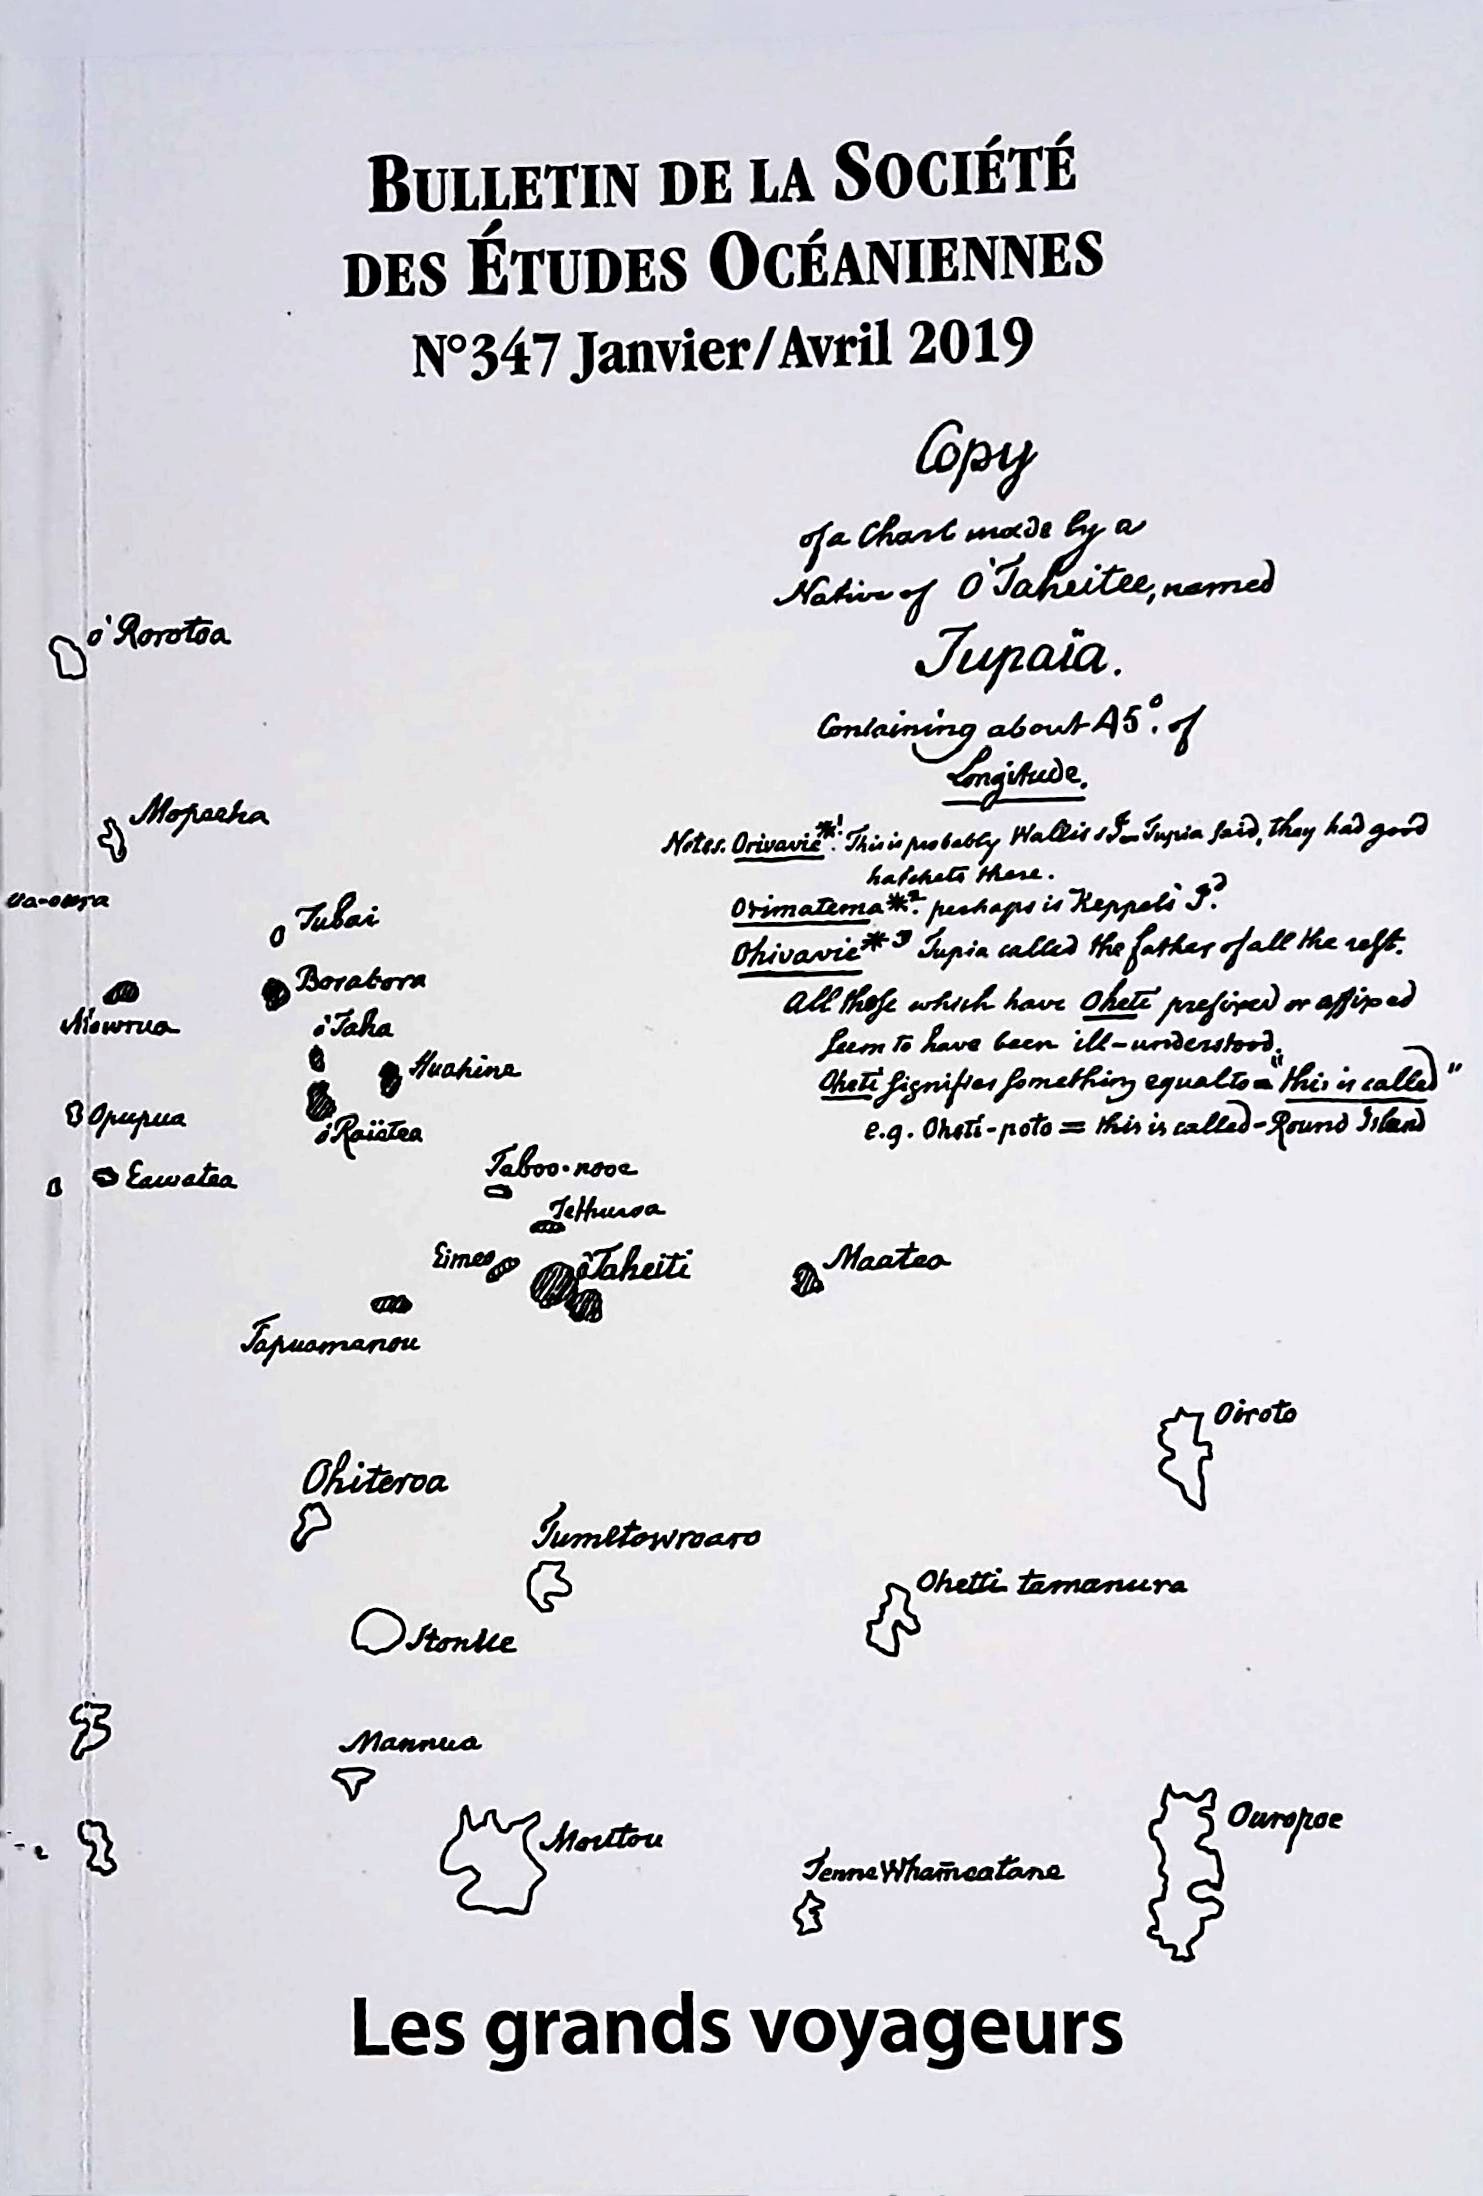 BULLETIN DE LA SOCIÉTÉ
DES ÉTUDES OCÉANIENNES
N°347 Janvier/Avril 2019
Copy
of a Chart made by a
Native of O'Taheitee, named
Tupaïa.
Containing about 45°. of
Longitude.
Notes. Orivavie*1. This is probably Wallis's I– Tupia said, they had good
hatchets there.
Orimatema*2. perhaps is Keppel's I?
Ohivavie*3 Tupia called the father of all the rest.
All those which have Oheti prefixed or affixed
seem to have been ill-understood.
Oheti signifies something equal to = "this is called"
e.g. Oheti-poto = this is called-Round Island
o'Rorotoa
Mopeeha
Tubai
Borabora
o'Taha
Huahine
Opupua
o'Raiätea
Eawatea
Taboo-nooe
Tethuroa
Eimeo
o'Taheiti
Maatea
Tapuamanou
Oiroto
Ohiteroa
Tumetowroaro
Ohetti tamanura
Mannua
Moutou
Ouropoe
Les grands voyageurs